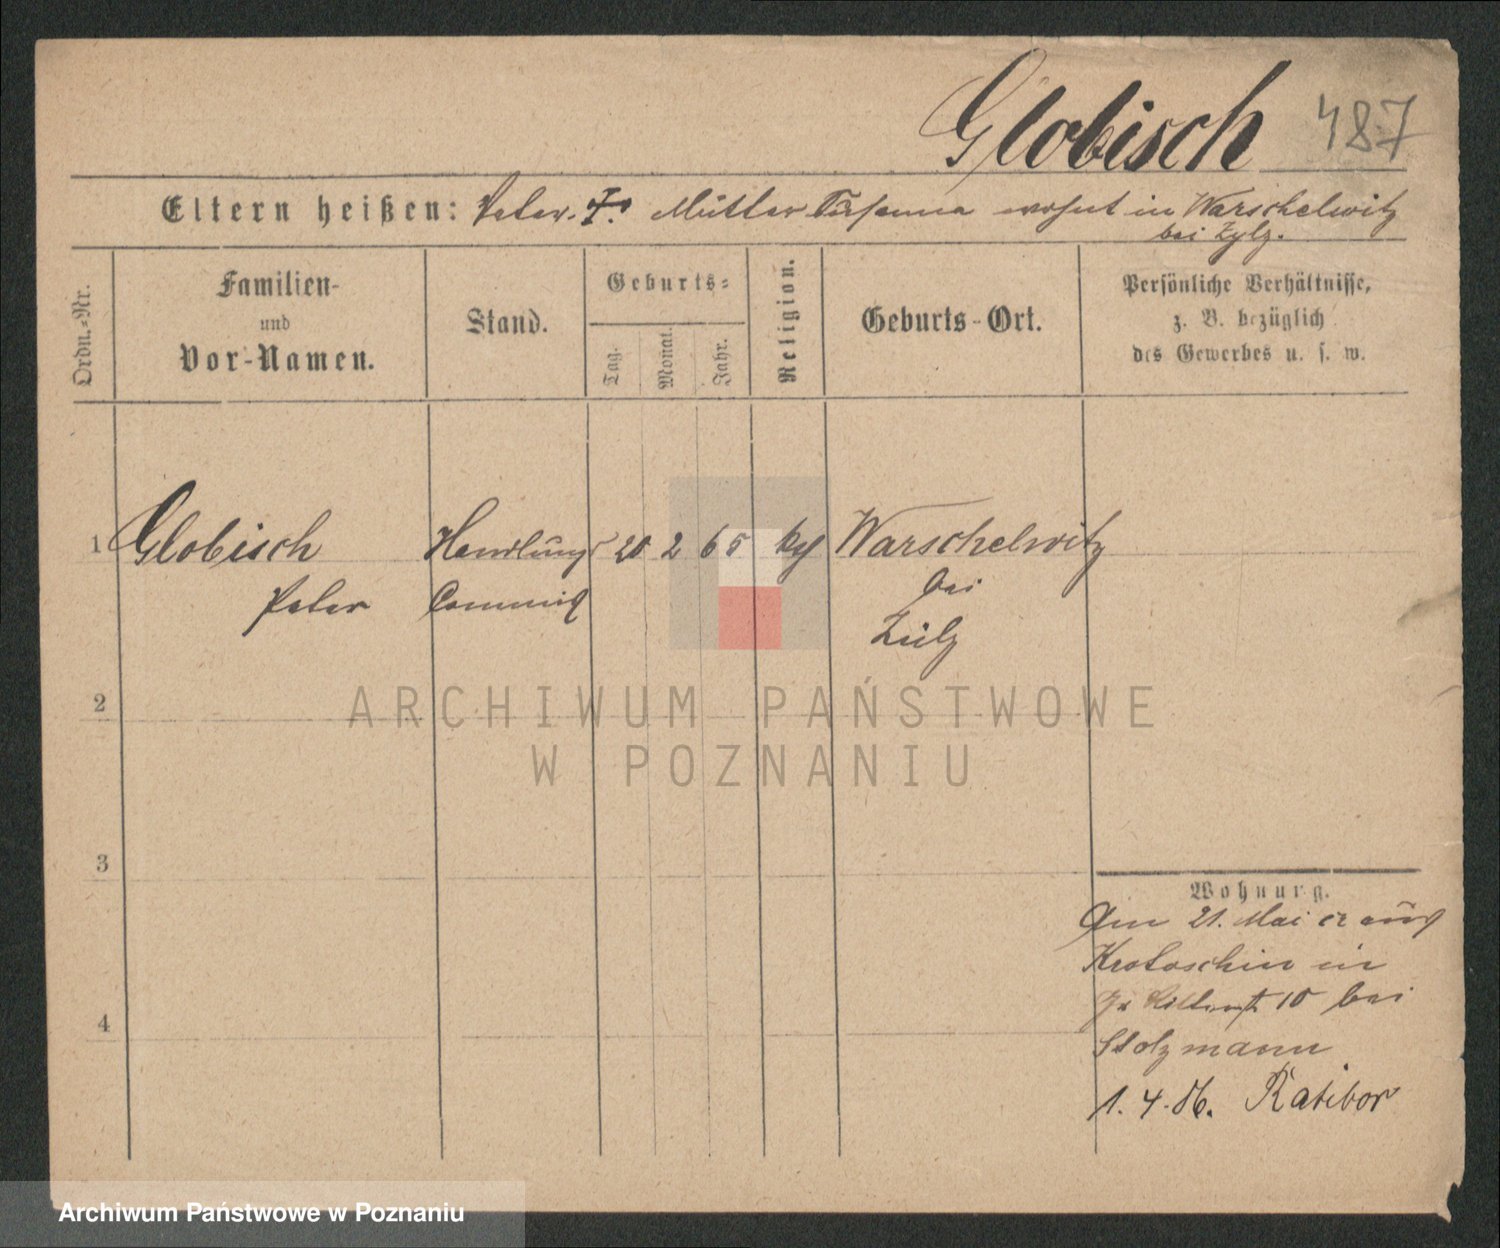 Globisch 487
Eltern heißen: Peter. †. Mutter Susanna wohnt in Warschelwitz
bei Zylz.
Ordn.-Nr.
Familien-
und
Vor-Namen.
Stand.
Geburts-
Tag.
Monat.
Jahr.
Religion.
Geburts-Ort.
Persönliche Verhältnisse,
z. B. bezüglich
des Gewerbes u. s. w.
1 Globisch Handlungs 20 2 65 Warschelwitz
Peter Commis bei
Zülz
2
3
4
Wohnung.
Am 21. Mai cr aus
Krotoschin in
10 bei
Stolzmann
1. 4. 86. Ratibor
ARCHIWUM PAŃSTWOWE
W POZNANIU
Archiwum Państwowe w Poznaniu